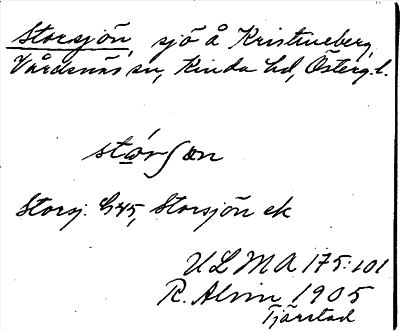 Storsjön, sjö å Kristineberg,
Vårdsnäs sn, Kinda hd, Österg. l.
Storsj. G45, Storsjön ek
ULMA 175:101
R. Alvin 1905
Tjärstad